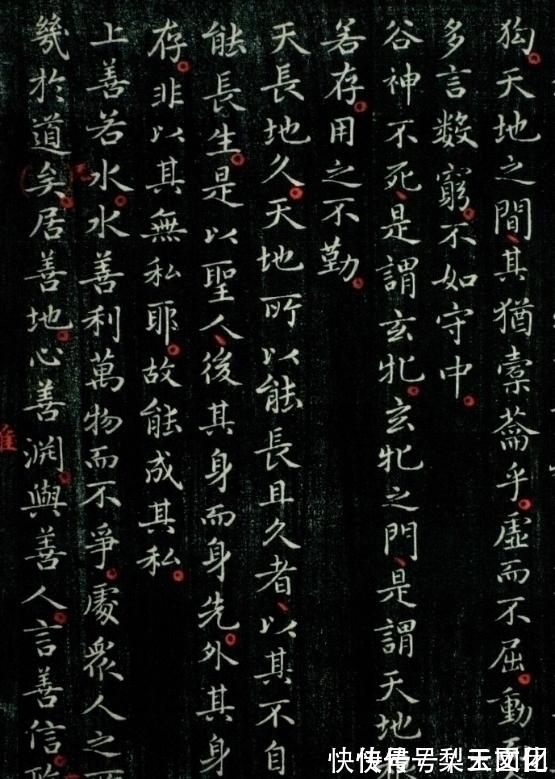 狗。天地之間、其猶橐蘥乎。虛而不屈。動
多言數窮。不如守中。
谷神不死、是謂玄牝。玄牝之門、是謂天地
若存。用之不勤。
天長地久。天地所以能長且久者、以其不自
能長生。是以聖人、後其身而身先。外其身
存。非以其無私耶。故能成其私。
上善若水。水善利萬物而不爭。處眾人之
幾於道矣。居善地。心善淵。與善人。言善信。